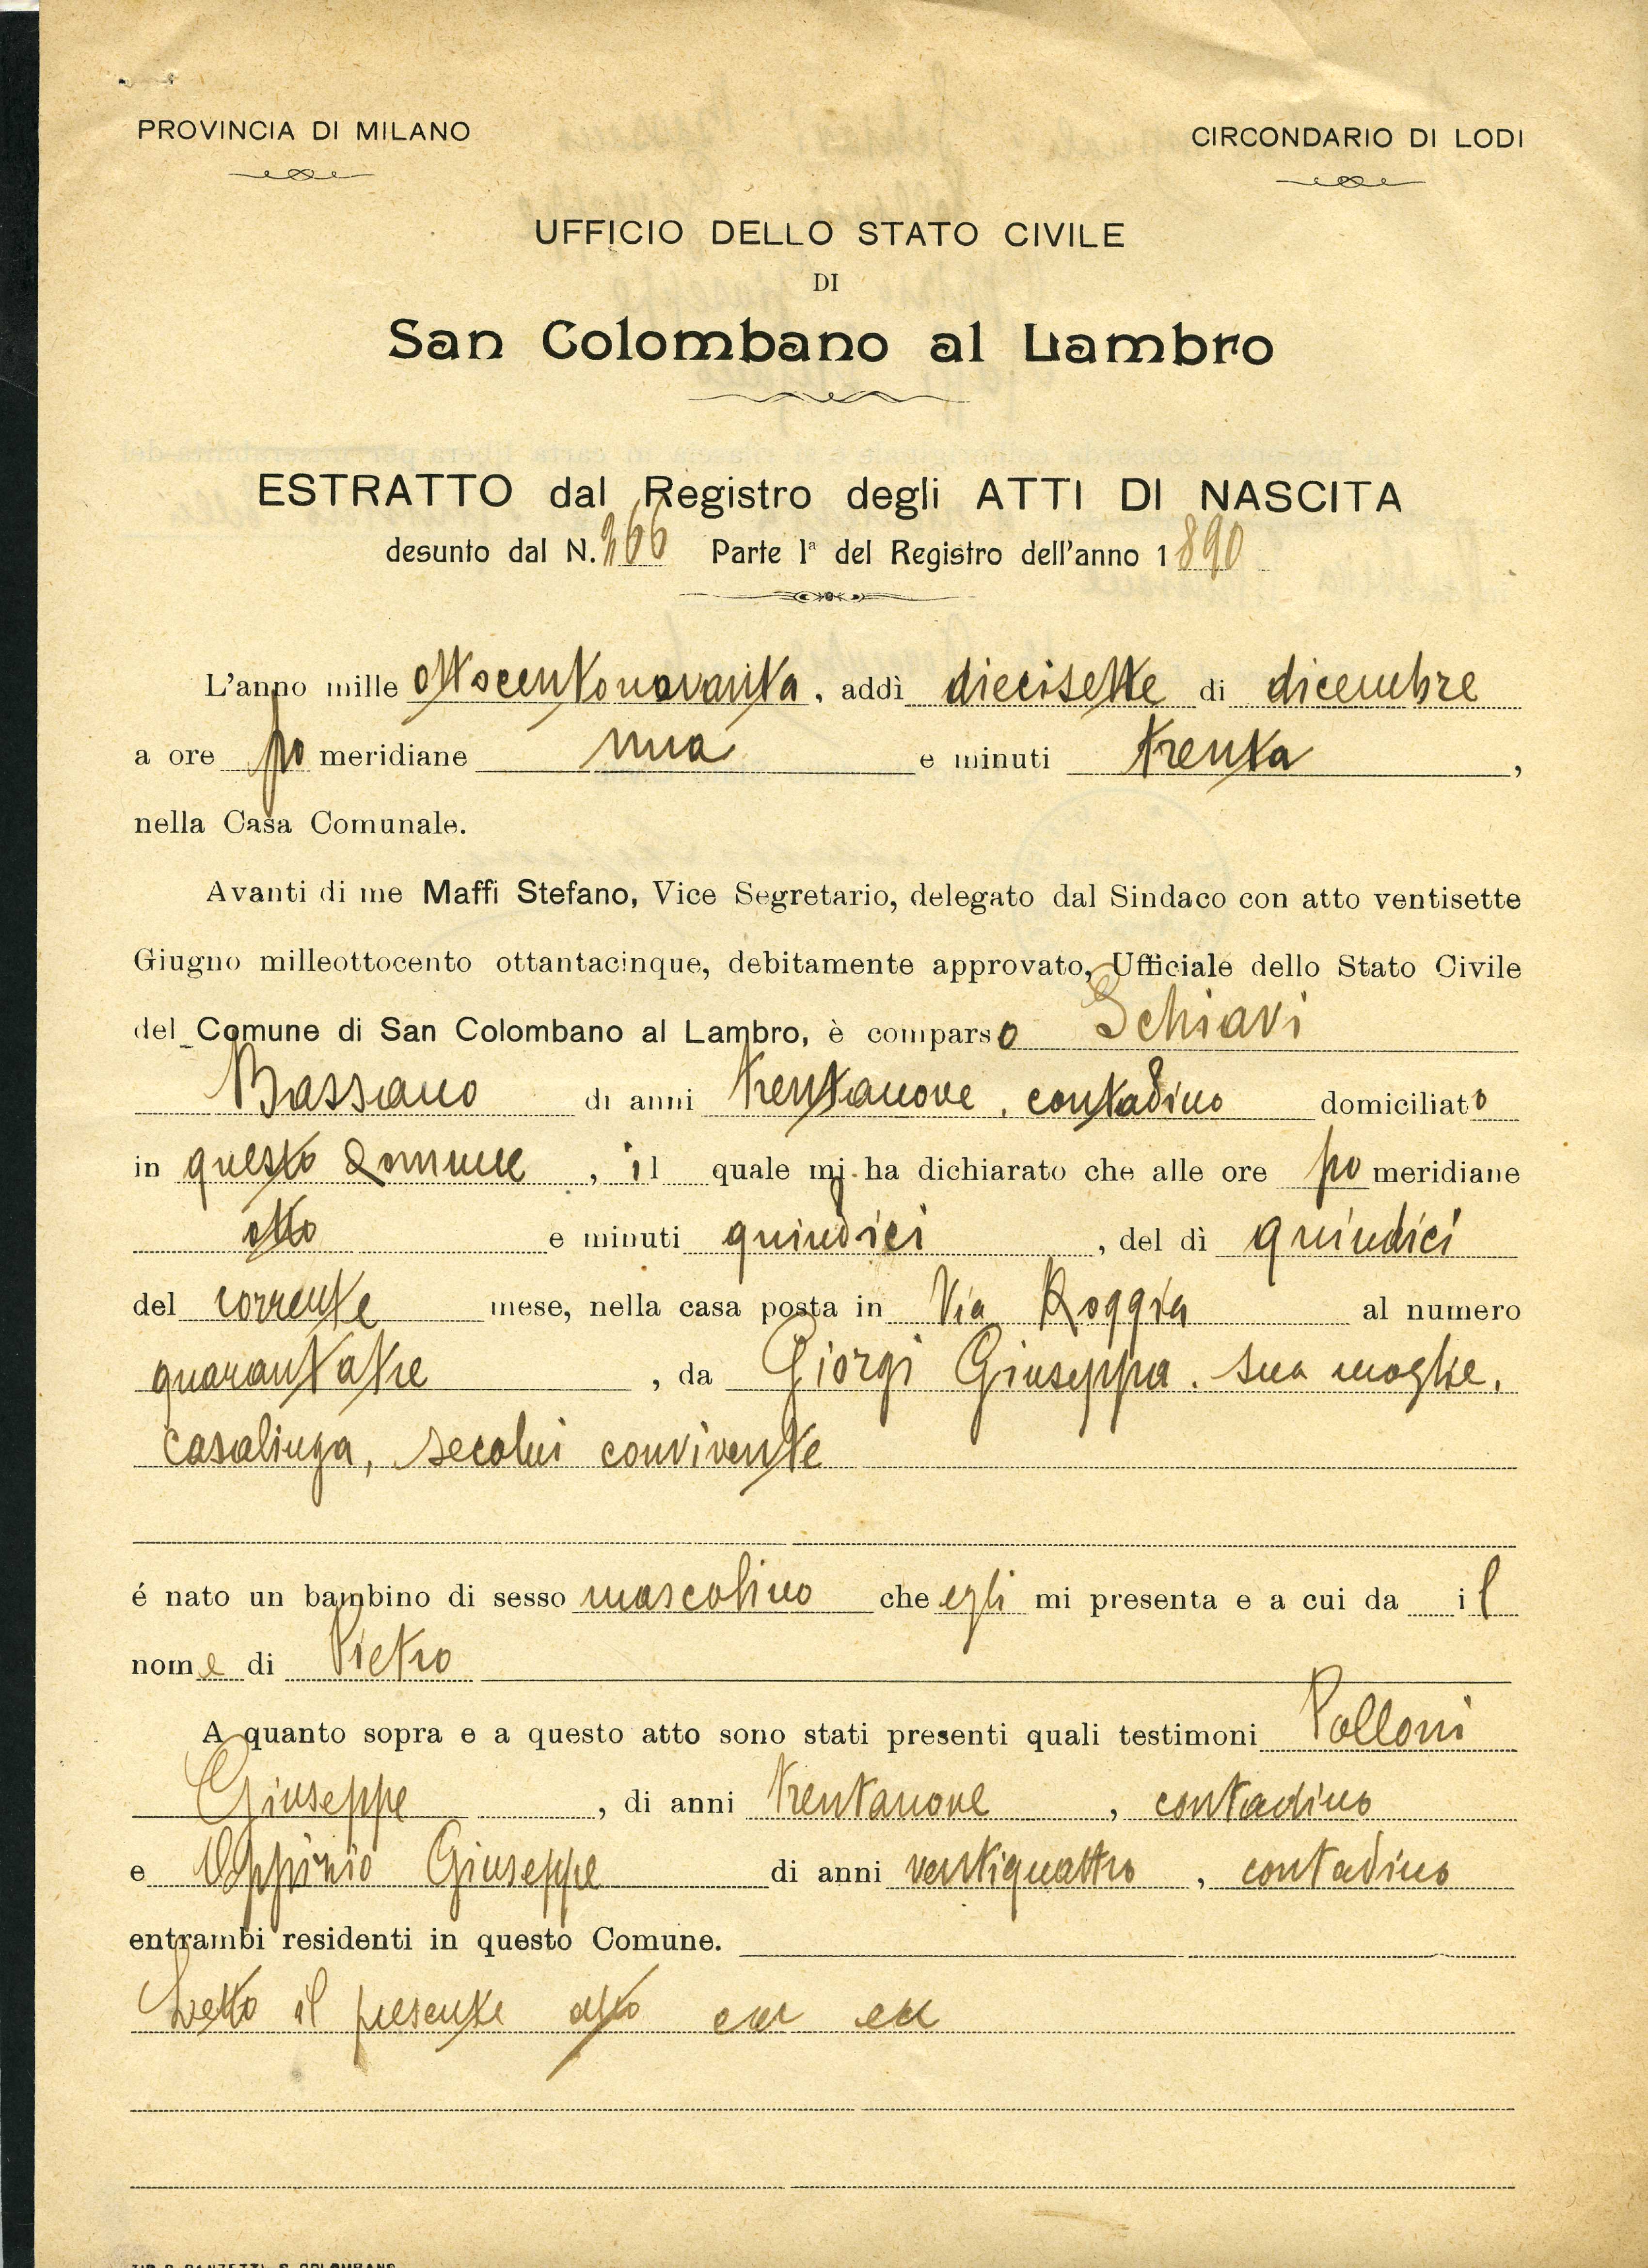 PROVINCIA DI MILANO
CIRCONDARIO DI LODI
UFFICIO DELLO STATO CIVILE
DI
San Colombano al Lambro
ESTRATTO dal Registro degli ATTI DI NASCITA
desunto dal N. 266 Parte 1ª del Registro dell'anno 1890
L'anno mille ottocentonovanta, addì diecisette di dicembre
a ore pomeridiane una e minuti trenta,
nella Casa Comunale.
Avanti di me Maffi Stefano, Vice Segretario, delegato dal Sindaco con atto ventisette
Giugno milleottocento ottantacinque, debitamente approvato, Ufficiale dello Stato Civile
del Comune di San Colombano al Lambro, è comparso Schiavi
Bassano di anni trentanove, contadino domiciliato
in questo Comune, il quale mi ha dichiarato che alle ore pomeridiane
otto e minuti quindici, del dì quindici
del corrente mese, nella casa posta in Via Roggia al numero
quarantatre, da Giorgi Giuseppa, sua moglie,
casalinga, secolui convivente
é nato un bambino di sesso mascolino che egli mi presenta e a cui da il
nome di Pietro
A quanto sopra e a questo atto sono stati presenti quali testimoni Polloni
Giuseppe, di anni trentanove, contadino
e Oppizio Giuseppe di anni ventiquattro, contadino
entrambi residenti in questo Comune.
Letto il presente atto ecc ecc